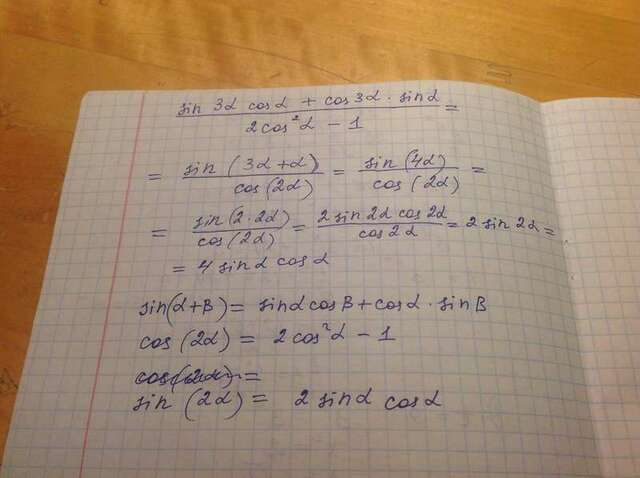 sin 3α cosα + cos3α · sinα / 2cos²α − 1 =
= sin (3α+α) / cos(2α) = sin(4α) / cos(2α) =
= sin(2·2α) / cos(2α) = 2 sin2α cos2α / cos2α = 2 sin 2α =
= 4 sinα cosα
sin(α+B) = sinα cosB + cosα · sinB
cos (2α) = 2cos²α − 1
cos(2α) =
sin (2α) = 2 sinα cosα